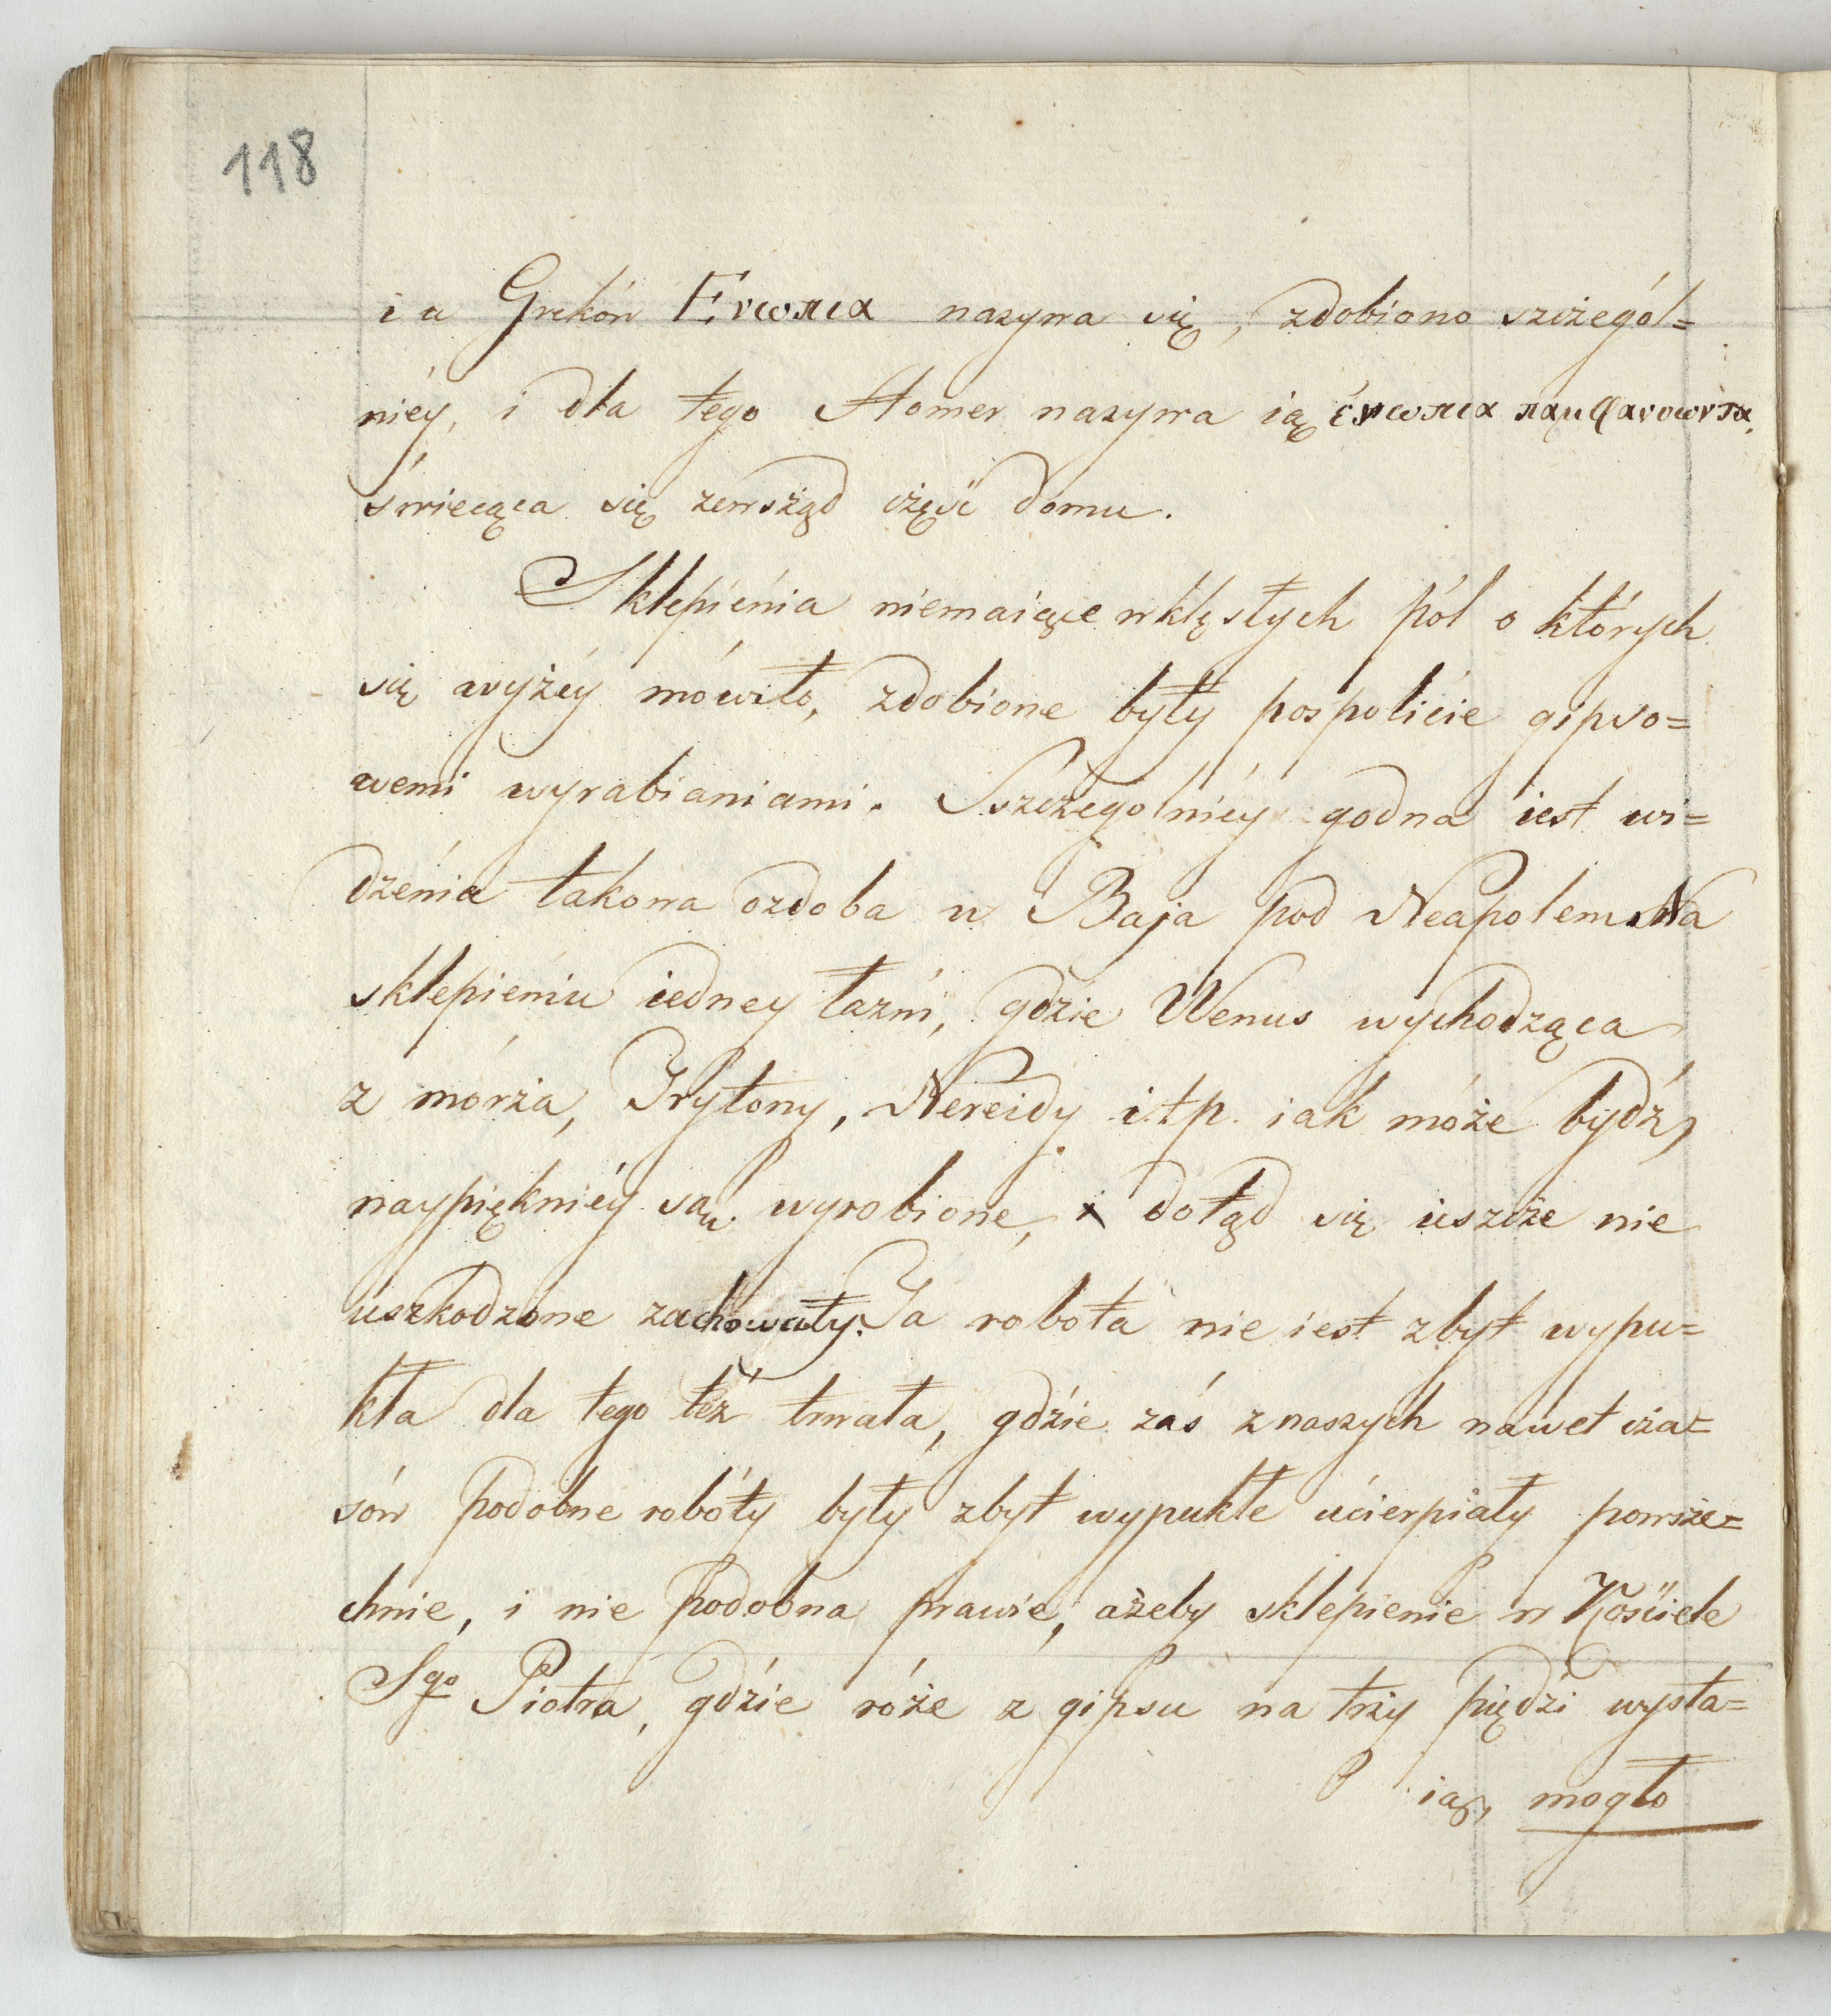 118
i u Greków Ενωπια nazywa się, zdobiono szczegól=
niéy, i dla tego Homer nazywa ią ἐνωπια παμφανοωντα.
świecąca się zewsząd część domu.
Sklepiénia niemaiące wklęsłych pól o których
się wyżéy mówiło, zdobione były pospolicie gipso=
wemi wyrabianiami. Szczegolniéy godna iest wi=
dzénia takowa ozdoba w Baja pod Neapolem. Na
sklepieniu iedney łazni, gdzie Wenus wychodząca
z mórza, Trytony, Nereidy i.t.p. iak móże bydź,
naypiękniéy są wyrobione, i dotąd się ieszcze nie
uszkodzone zachowały. Ta robota nie iest zbyt wypu=
kła dla tego téż trwała, gdzie zaś z naszych nawet cza=
sów podobne robóty były zbyt wypukłe ucierpiały powsze=
chnie, i nie podobna prawie, ażeby sklepienie w Kościele
Sgo Piotra, gdzie róże z gipsu na trzy piędzi wysta=
ią, mogło